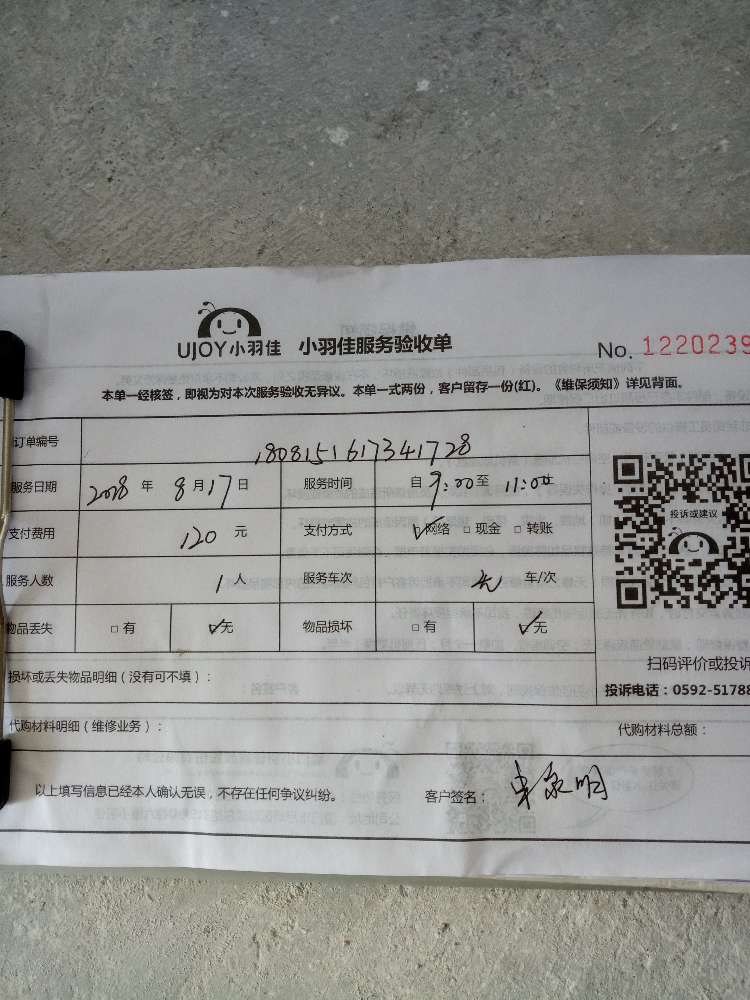 UJOY小羽佳 小羽佳服务验收单
No. 1220239
本单一经核签，即视为对本次服务验收无异议。本单一式两份，客户留存一份(红)。《维保须知》详见背面。
订单编号 1808151617341728
服务日期 2018 年 8 月 17 日 服务时间 自 9:00 至 11:00
支付费用 120 元 支付方式 ☑网络 □现金 □转账
投诉或建议
服务人数 1 人 服务车次 无 车/次
物品丢失 □有 ☑无 物品损坏 □有 ☑无
损坏或丢失物品明细（没有可不填）：
扫码评价或投诉
投诉电话：0592-51788
代购材料明细（维修业务）：
代购材料总额：
以上填写信息已经本人确认无误，不存在任何争议纠纷。 客户签名：